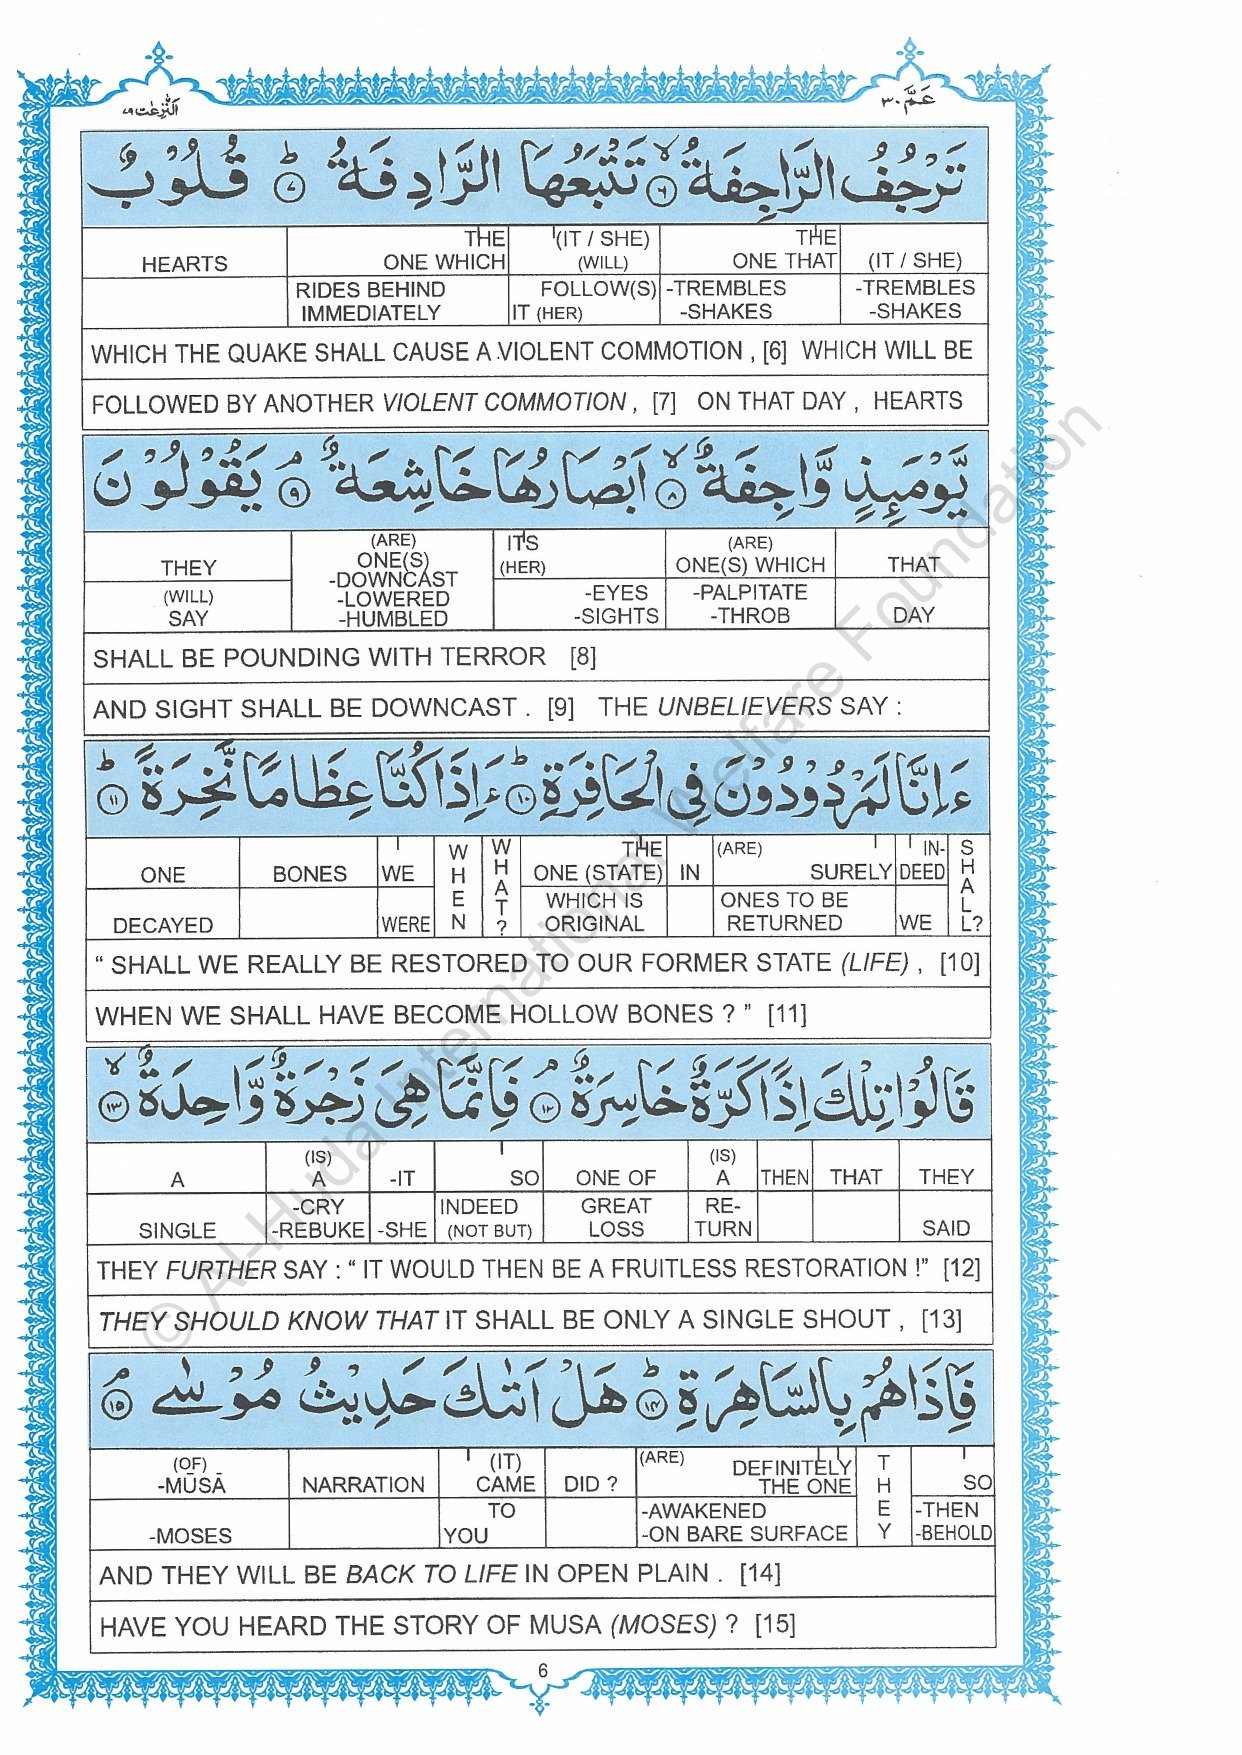 النّٰزِعٰت ٧٩
عَمَّ ٣٠
تَرْجُفُ الرَّاجِفَةُ ۙ ٦ تَتْبَعُهَا الرَّادِفَةُ ؕ ٧ قُلُوْبٌ
HEARTS | THE ONE WHICH | (IT / SHE) (WILL) | THE ONE THAT | (IT / SHE)
RIDES BEHIND IMMEDIATELY | FOLLOW(S) IT (HER) | -TREMBLES -SHAKES | -TREMBLES -SHAKES
WHICH THE QUAKE SHALL CAUSE A VIOLENT COMMOTION , [6] WHICH WILL BE
FOLLOWED BY ANOTHER VIOLENT COMMOTION , [7] ON THAT DAY , HEARTS
يَّوْمَئِذٍ وَّاجِفَةٌ ۙ ٨ اَبْصَارُهَا خَاشِعَةٌ ۘ ٩ يَقُوْلُوْنَ
THEY | (ARE) ONE(S) -DOWNCAST -LOWERED -HUMBLED | IT'S (HER) | (ARE) ONE(S) WHICH | THAT
(WILL) SAY | -EYES -SIGHTS | -PALPITATE -THROB | DAY
SHALL BE POUNDING WITH TERROR [8]
AND SIGHT SHALL BE DOWNCAST . [9] THE UNBELIEVERS SAY :
ءَاِنَّا لَمَرْدُوْدُوْنَ فِي الْحَافِرَةِ ؕ ١٠ ءَاِذَا كُنَّا عِظَامًا نَّخِرَةً ؕ ١١
ONE | BONES | WE | WHEN | WHAT? | THE ONE (STATE) | IN | (ARE) SURELY | IN-DEED | SHALL?
DECAYED | WERE | WHICH IS ORIGINAL | ONES TO BE RETURNED | WE
“ SHALL WE REALLY BE RESTORED TO OUR FORMER STATE (LIFE) , [10]
WHEN WE SHALL HAVE BECOME HOLLOW BONES ? ” [11]
قَالُوْا تِلْكَ اِذًا كَرَّةٌ خَاسِرَةٌ ۘ ١٢ فَاِنَّمَا هِيَ زَجْرَةٌ وَّاحِدَةٌ ۙ ١٣
A | (IS) A | -IT | SO | ONE OF | (IS) A | THEN | THAT | THEY
SINGLE | -CRY -REBUKE | -SHE | INDEED (NOT BUT) | GREAT LOSS | RE-TURN | SAID
THEY FURTHER SAY : “ IT WOULD THEN BE A FRUITLESS RESTORATION !” [12]
THEY SHOULD KNOW THAT IT SHALL BE ONLY A SINGLE SHOUT , [13]
فَاِذَا هُمْ بِالسَّاهِرَةِ ؕ ١٤ هَلْ اَتٰىكَ حَدِيْثُ مُوْسٰى ۘ ١٥
(OF) -MŪSĀ | NARRATION | (IT) CAME | DID ? | (ARE) DEFINITELY THE ONE | THEY | SO
-MOSES | TO YOU | -AWAKENED -ON BARE SURFACE | -THEN -BEHOLD
AND THEY WILL BE BACK TO LIFE IN OPEN PLAIN . [14]
HAVE YOU HEARD THE STORY OF MUSA (MOSES) ? [15]
6
© Al-Huda International Welfare Foundation